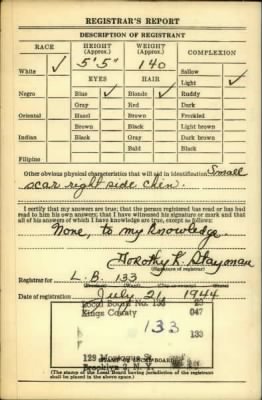 REGISTRAR'S REPORT
DESCRIPTION OF REGISTRANT
RACE HEIGHT (Approx.) WEIGHT (Approx.) COMPLEXION
White ✓ 5' 5" 140 Sallow
Light ✓
EYES HAIR
Negro Blue ✓ Blonde ✓ Ruddy
Gray Red Dark
Oriental Hazel Brown Freckled
Brown Black Light brown
Indian Black Gray Dark brown
Bald Black
Filipino
Other obvious physical characteristics that will aid in identification Small
scar right side chin.
I certify that my answers are true; that the person registered has read or has had
read to him his own answers; that I have witnessed his signature or mark and that
all of his answers of which I have knowledge are true, except as follows:
None, to my knowledge.
Dorothy L. Stayman
(Signature of registrar)
Registrar for L. B. 133
Date of registration July 21 1944
Local Board No. 133
Kings County 047
133 133
129
Brooklyn 5, N. Y.
(The stamp of the Local Board having jurisdiction of the registrant
shall be placed in the above space.)